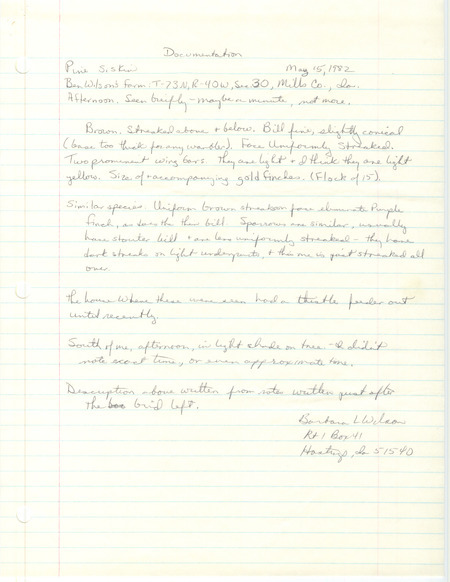 Documentation
Pine Siskin May 15, 1982
Ben Wilson's Farm: T-73N, R-40W, Sec 30, Mills Co., Ia.
Afternoon. Seen breifly - maybe a minute, not more.
Brown. Streaked above + below. Bill fine, slightly conical
(base too thick for any warbler). Face Uniformly Streaked.
Two prominent wing bars. They are light + I think they are light
yellow. Size of accompanying gold finches. (Flock of 15).
Similar species: Uniform brown streaks on face eliminate Purple
Finch, as does the thin bill. Sparrows are similar, usually
have stouter bill + are less uniformly streaked - they have
dark streaks on light underparts, + this one is just streaked all
over.
The house where these were seen had a thistle feeder out
until recently.
South of me, afternoon, in light shade on tree - I didn't
note exact time, or even approximate time.
Description above written from notes written just after
the bird left.
Barbara L Wilson
Rt 1 Box 41
Hastings, Ia 51540